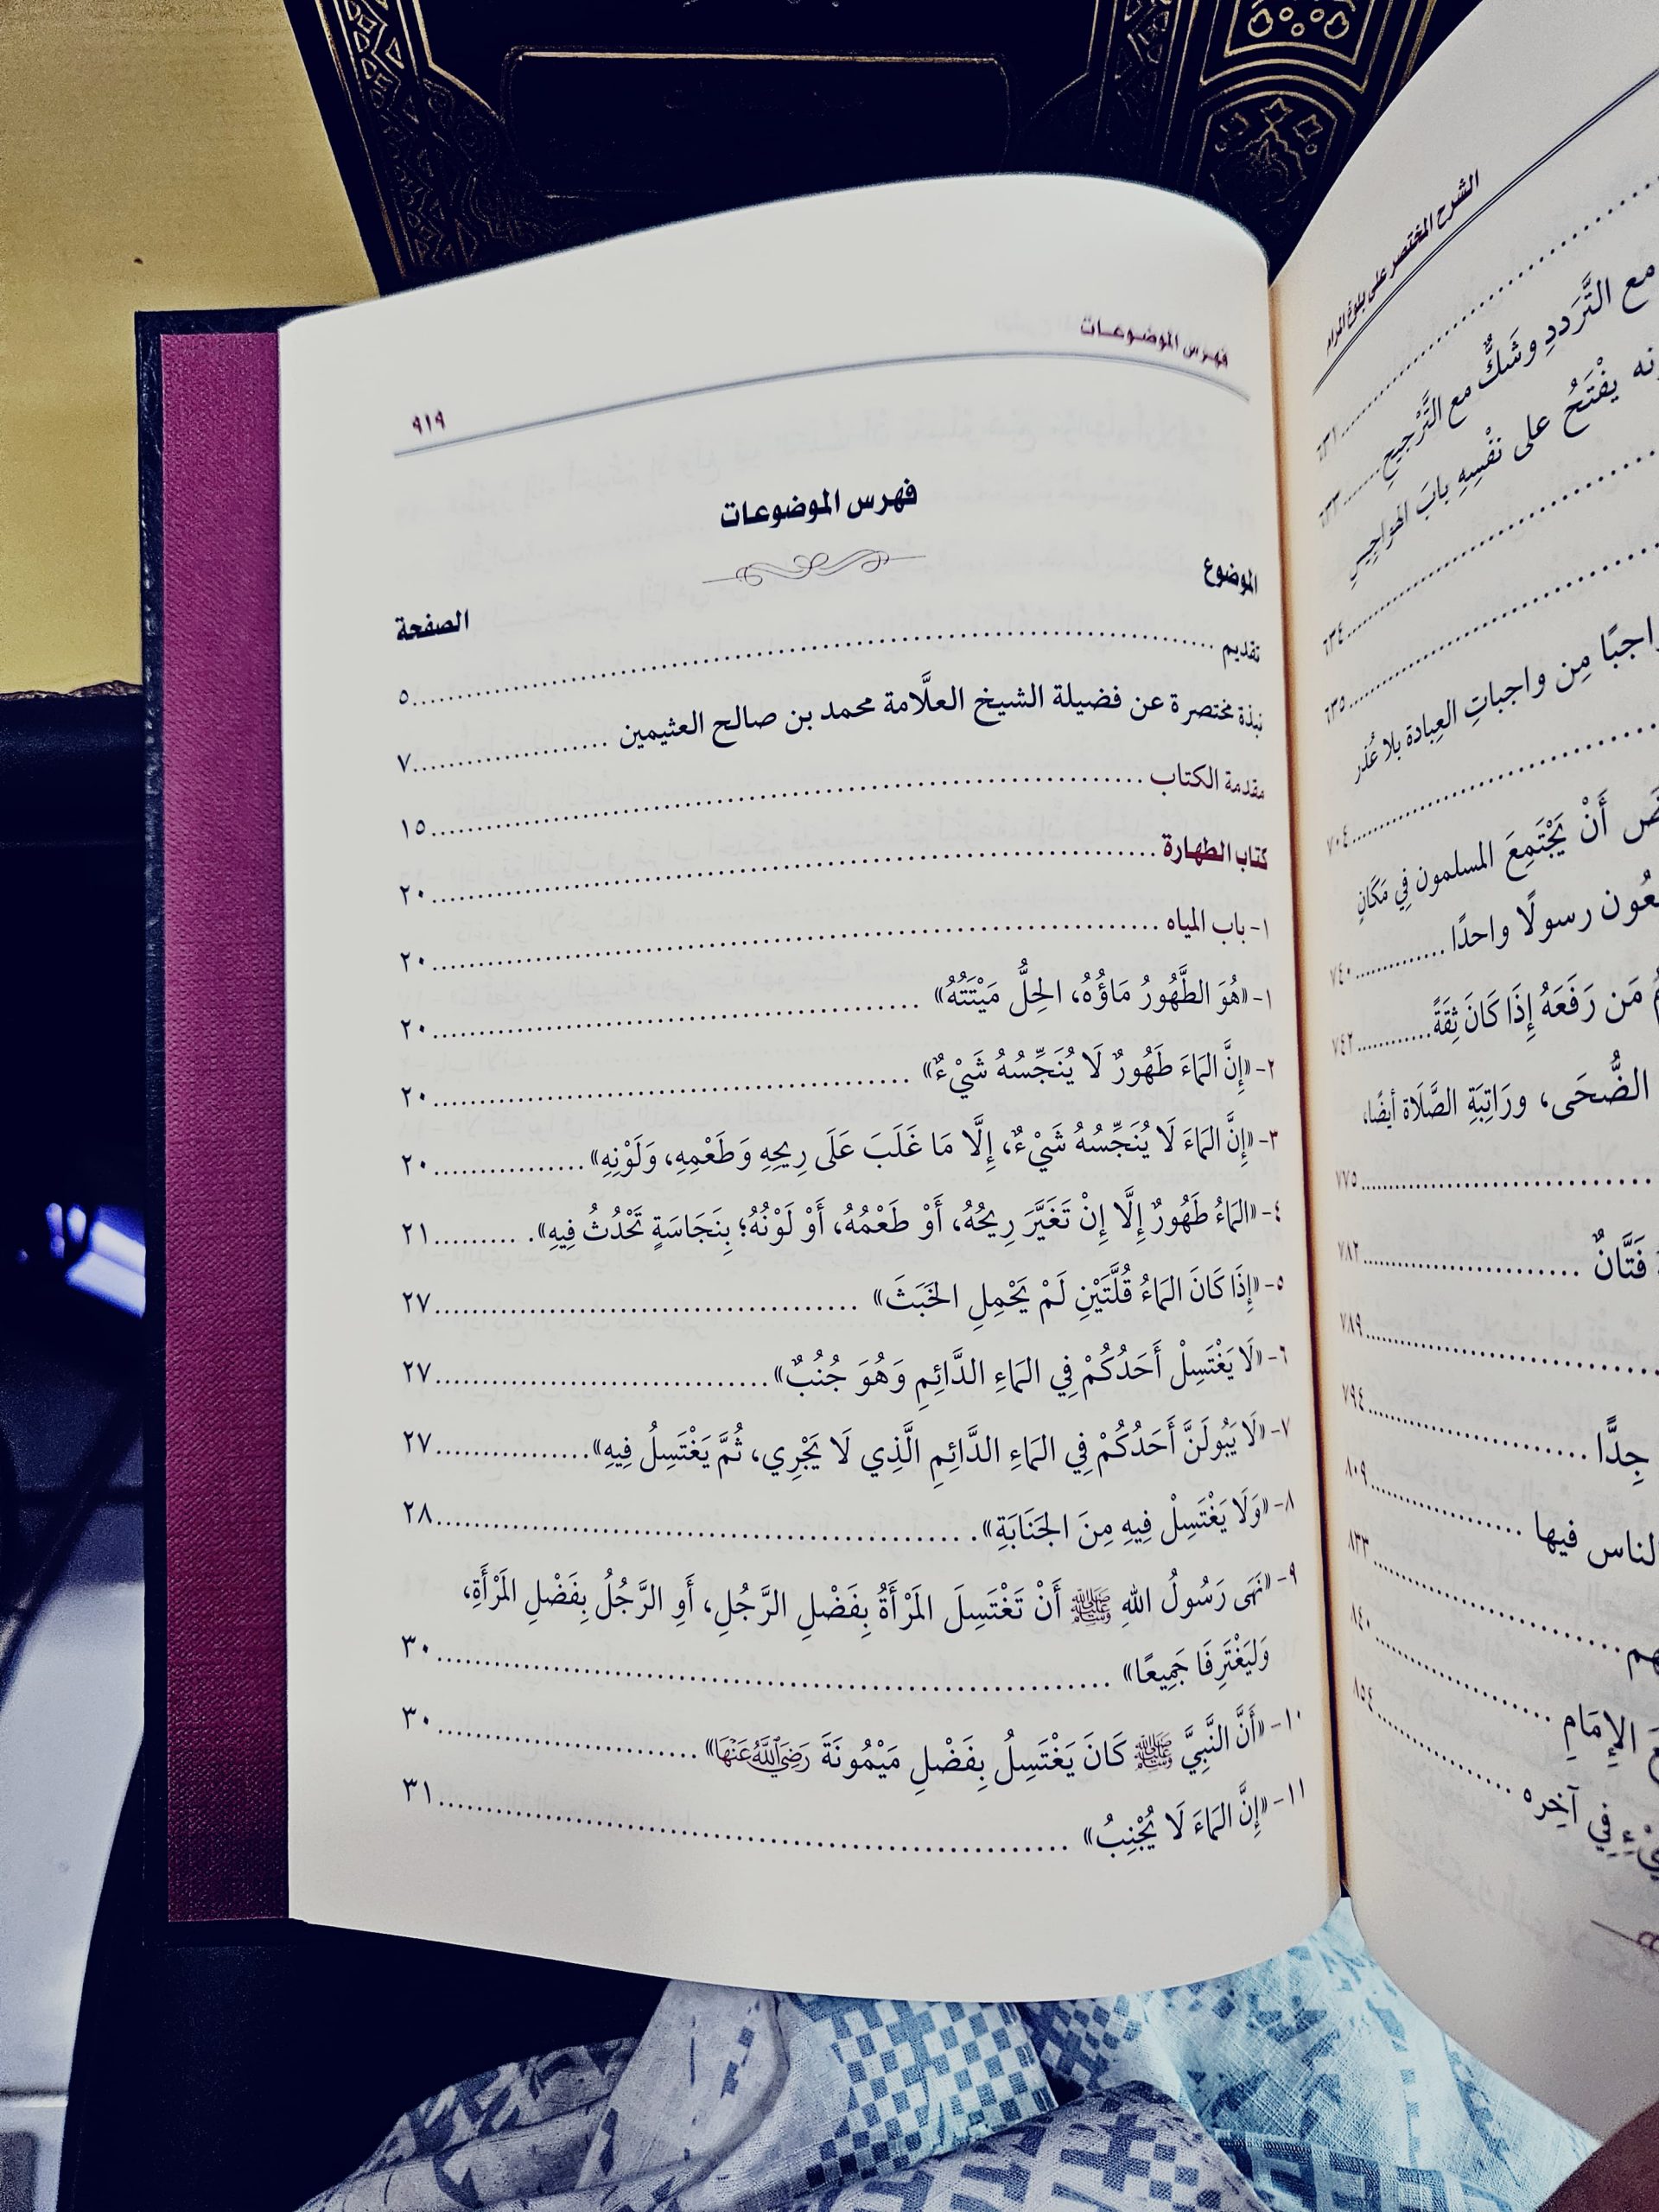 الشرح المختصر على بلوغ المرام
مع التَّرَددِ وشَكٌّ مع التَّرْجِيحِ
٦٣١
٦٣٣
يفْتَحُ على نفْسِهِ بابَ الهَوَاجِيسِ
٦٣٤
٦٣٥
مِن واجباتِ العِبادة بلا عُذر
٧٠٤
أَنْ يَجْتَمِعَ المسلمون فِي مَكَانٍ
رسولًا واحدًا
٧٤٠
مَن رَفَعَهُ إِذَا كَانَ ثِقَةً
٧٤٢
الضُّحَى، ورَاتِبَةِ الصَّلَاة أيضًا،
٧٧٥
فَتَّانٌ
٧٨٢
٧٨٩
جِدًّا
٧٩٤
الناس فيها
٨٠٩
٨٣٣
الإِمَامِ
٨٤٠
فِي آخِرِه
٨٥٤
فهرس الموضوعات
٩١٩
فهرس الموضوعات
الموضوع الصفحة
تقديم ٥
نبذة مختصرة عن فضيلة الشيخ العلَّامة محمد بن صالح العثيمين ٧
مقدمة الكتاب ١٥
كتاب الطهارة ٢٠
١- باب المياه ٢٠
١- «هُوَ الطَّهُورُ مَاؤُهُ، الحِلُّ مَيْتَتُهُ» ٢٠
٢- «إِنَّ المَاءَ طَهُورٌ لَا يُنَجِّسُهُ شَيْءٌ» ٢٠
٣- «إِنَّ المَاءَ لَا يُنَجِّسُهُ شَيْءٌ، إِلَّا مَا غَلَبَ عَلَى رِيحِهِ وَطَعْمِهِ، وَلَوْنِهِ» ٢٠
٤- «المَاءُ طَهُورٌ إِلَّا إِنْ تَغَيَّرَ رِيحُهُ، أَوْ طَعْمُهُ، أَوْ لَوْنُهُ؛ بِنَجَاسَةٍ تَحْدُثُ فِيهِ». ٢١
٥- «إِذَا كَانَ المَاءُ قُلَّتَيْنِ لَمْ يَحْمِلِ الخَبَثَ» ٢٧
٦- «لَا يَغْتَسِلْ أَحَدُكُمْ فِي المَاءِ الدَّائِمِ وَهُوَ جُنُبٌ» ٢٧
٧- «لَا يَبُولَنَّ أَحَدُكُمْ فِي المَاءِ الدَّائِمِ الَّذِي لَا يَجْرِي، ثُمَّ يَغْتَسِلُ فِيهِ» ٢٧
٨- «وَلَا يَغْتَسِلْ فِيهِ مِنَ الجَنَابَةِ». ٢٨
٩- «نَهَى رَسُولُ اللهِ ﷺ أَنْ تَغْتَسِلَ المَرْأَةُ بِفَضْلِ الرَّجُلِ، أَوِ الرَّجُلُ بِفَضْلِ المَرْأَةِ،
وَليَغْتَرِفَا جَمِيعًا» ٣٠
١٠- «أَنَّ النَّبِيَّ ﷺ كَانَ يَغْتَسِلُ بِفَضْلِ مَيْمُونَةَ رَضِيَ اللَّهُ عَنْهَا» ٣٠
١١- «إِنَّ المَاءَ لَا يُجْنِبُ» ٣١